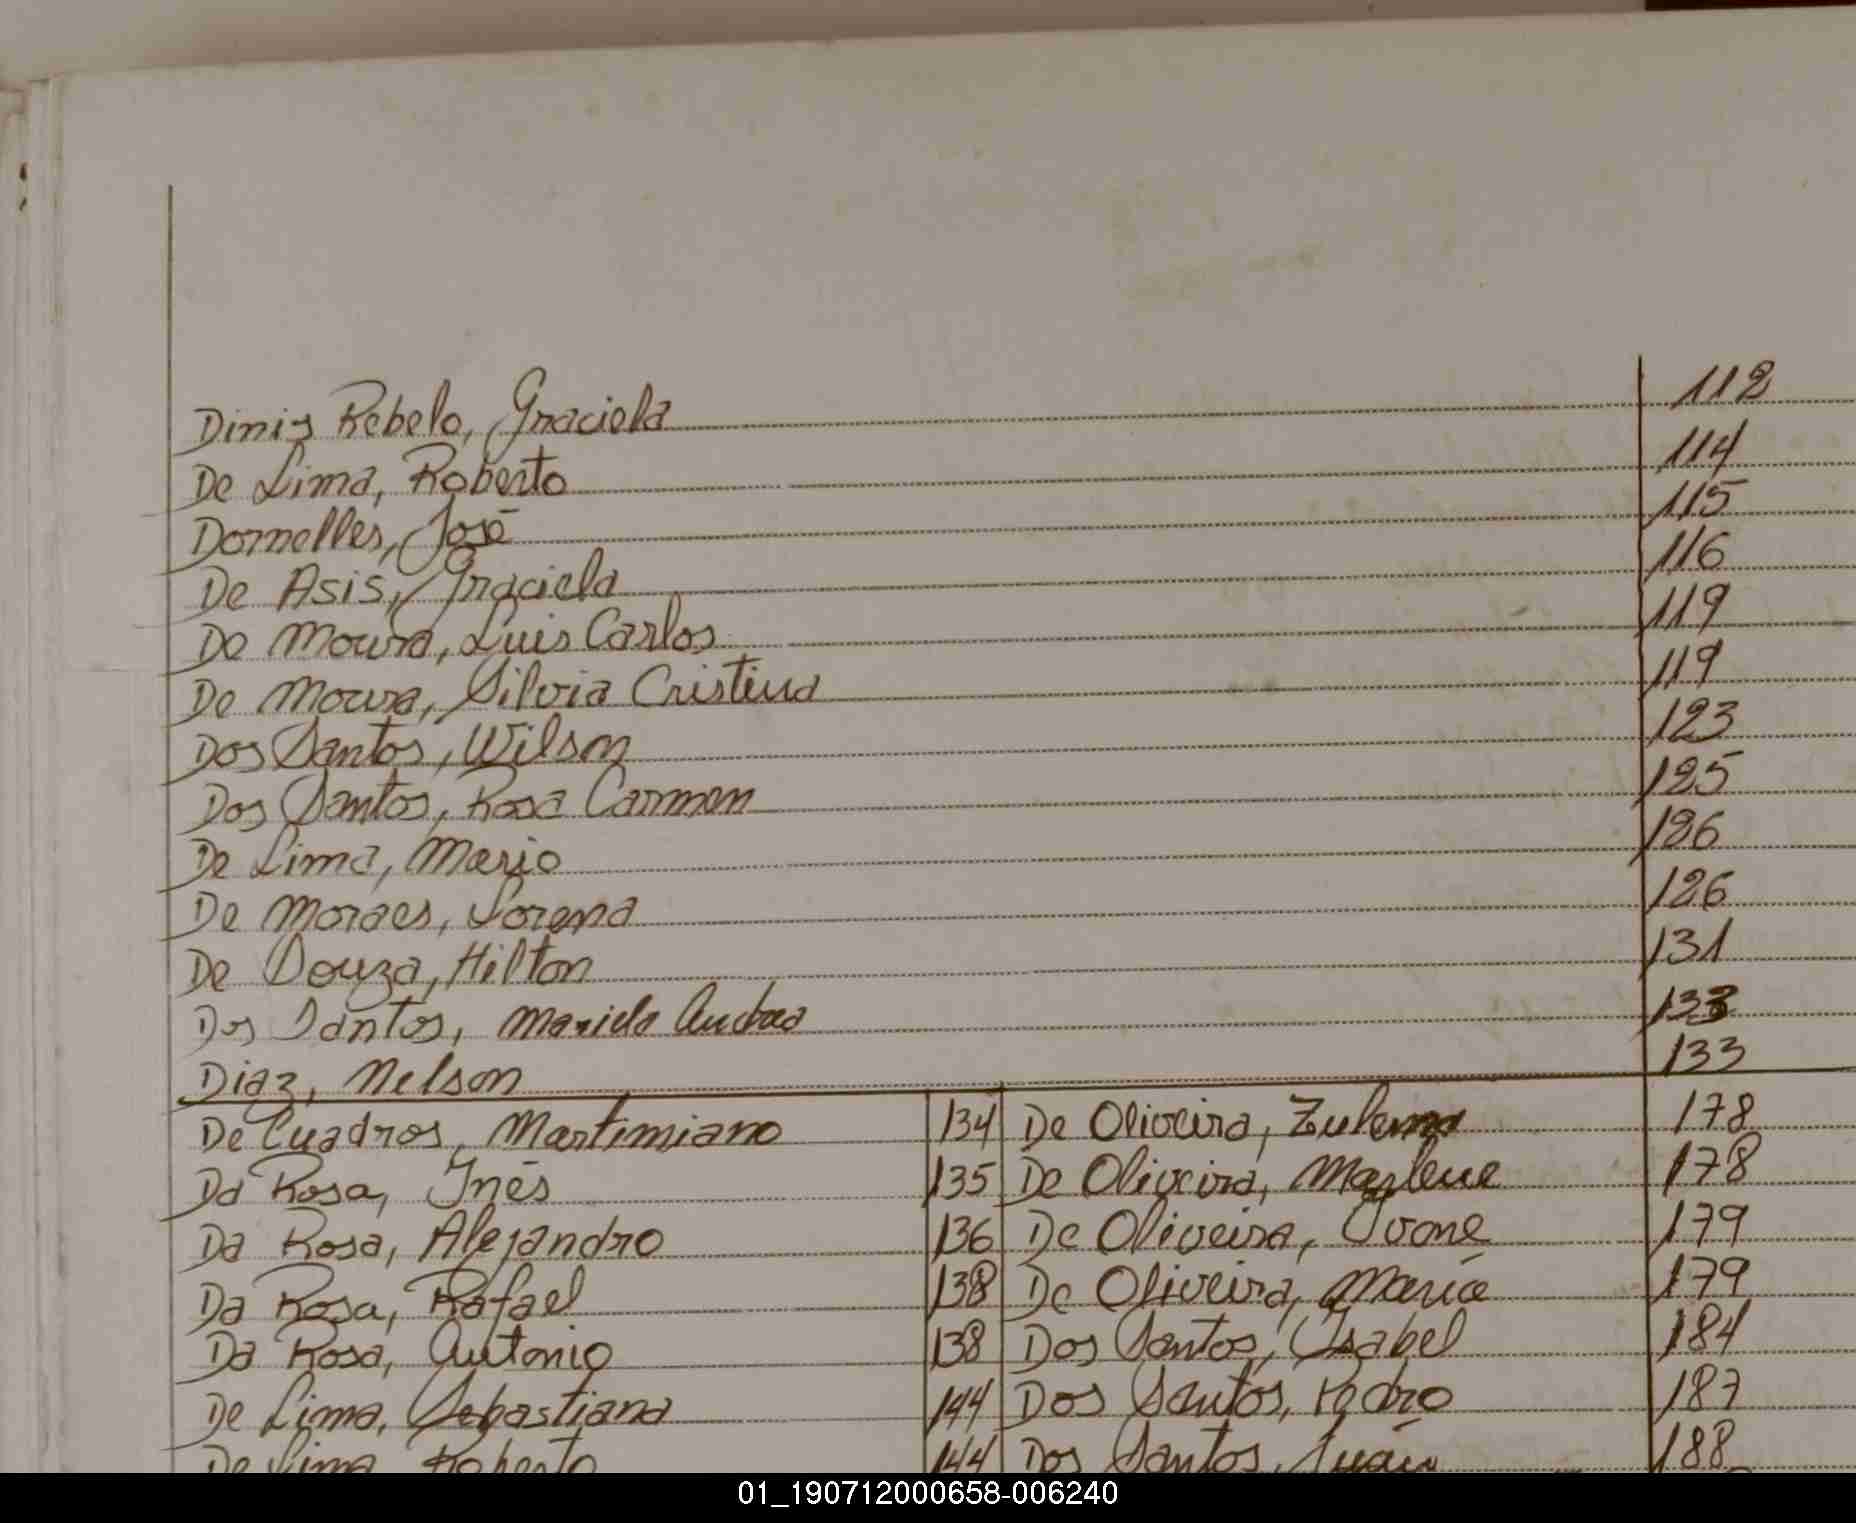 Dinis Rebelo, Graciela 112
De Lima, Roberto 114
Dornelles, José 115
De Asis, Graciela 116
De Moura, Luis Carlos 119
De Moura, Silvia Cristina 119
Dos Santos, Wilson 123
Dos Santos, Rosa Carmen 125
De Lima, Mario 126
De Moraes, Lorena 126
De Souza, Hilton 131
Dos Santos, Mariela Andrea 133
Diaz, Nelson 133
De Cuadros, Martimiano 134 De Oliveira, Zulema 178
Da Rosa, Inés 135 De Oliveira, Marlene 178
Da Rosa, Alejandro 136 De Oliveira, Ivone 179
Da Rosa, Rafael 138 De Oliveira, María 179
Da Rosa, Antonio 138 Dos Santos, Isabel 184
De Lima, Sebastiana 144 Dos Santos, Pedro 187
De Lima, Roberto 144 Dos Santos, Juan 188
01_190712000658-006240